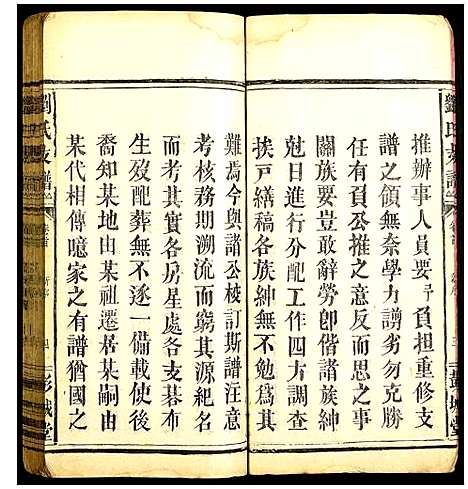 劉氏支譜
卷首
新序
三
彭城堂
推辦事人員要予負担重修支
譜之領無奈學力譾劣勿克勝
任有負公推之意反而思之事
關族要豈敢辭勞卽偕諸族紳
尅日進行分配工作四方調查
挨戶繕稿各族紳無不勉爲其
難焉今與諸公校訂斯譜注意
考核務期溯流而窮其源紀名
而考其實於各房星處各支碁布
生歿配葬無不逐一備載使後
裔知某地由某祖遷居某嗣由
某代相傳噫家之有譜猶國之
劉氏支譜
卷首
新序
四
彭城堂